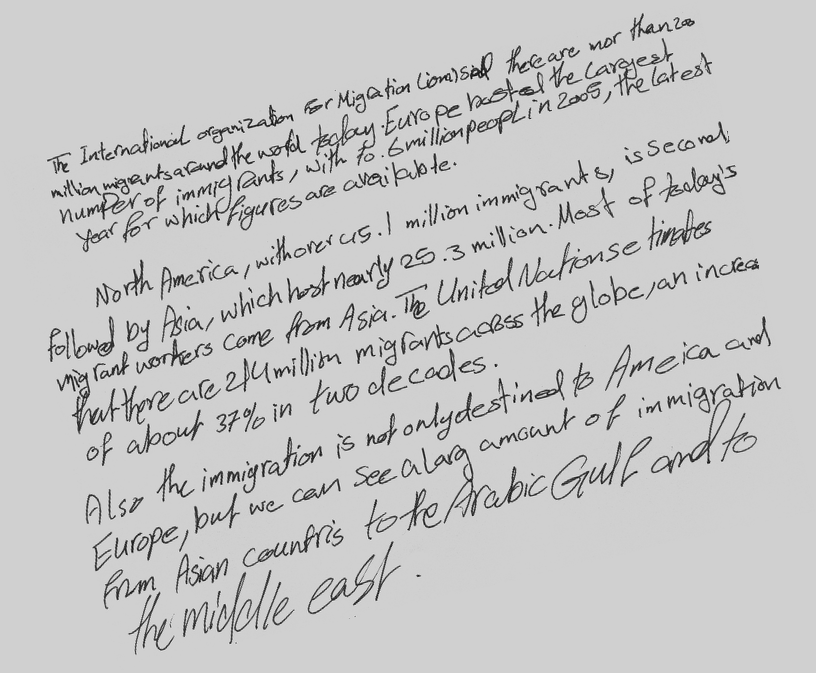 The International organization For Migration (iom) said there are mor than 200
million migrants around the world today. Europe hosted the Largest
number of immigrants, with 70.6 million peopl in 2005, the latest
year for which figures are available.
North America, with over 45.1 million immigrants, is second,
followed by Asia, which host nearly 25.3 million. Most of today's
migrant workers come from Asia. The United Nations etimates
that there are 214 million migrants across the globe, an increa
of about 37% in two decades.
Also the immigration is not only destined to Ameica and
Europe, but we can see a larg amount of immigration
from Asian countris to the Arabic Gulf and to
the middle east.